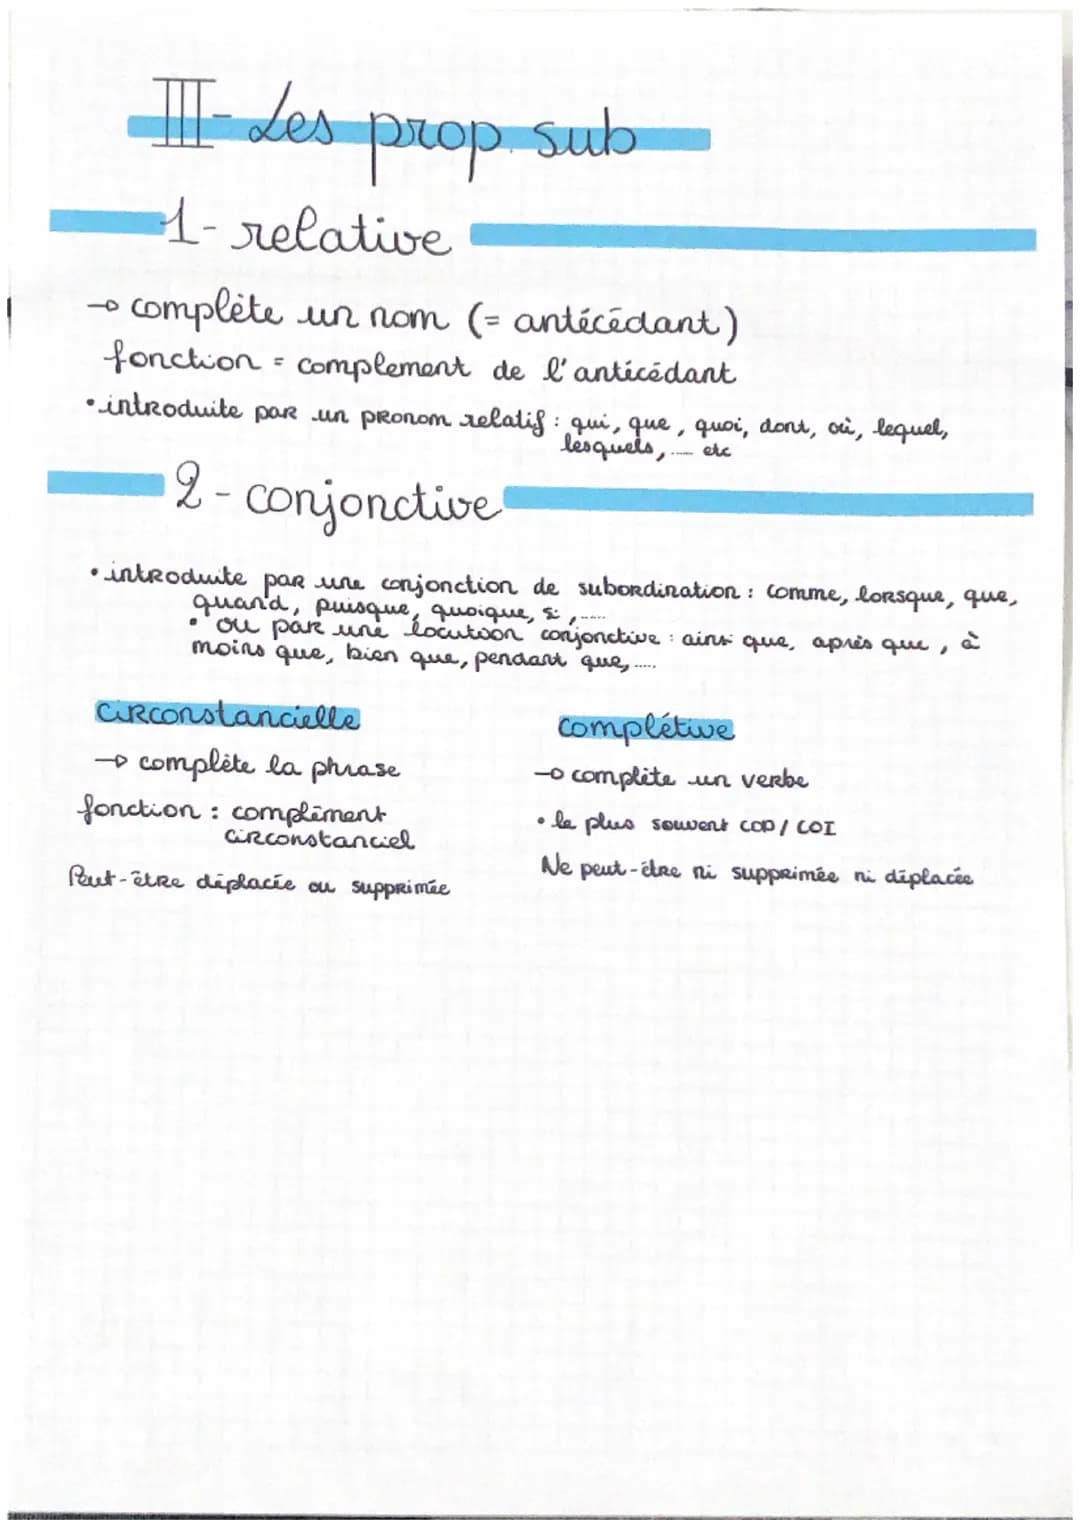 III- Les prop. sub
1- relative
→ complète un nom (= antécédant)
fonction = complement de l'antécédant
• introduite par un pronom relatif : qui, que, quoi, dont, où, lequel,
lesquels, ..... etc
2- conjonctive
• introduite par une conjonction de subordination : comme, lorsque, que,
quand, puisque, quoique, si, .....
• ou par une locutoon conjonctive : ainsi que, après que, à
moins que, bien que, pendant que, .....
circonstancielle
→ complète la phrase
fonction : complément
circonstanciel
Peut-être déplacée ou supprimée
complétive
→ complète un verbe
• le plus souvent COD / COI
Ne peut-être ni supprimée ni déplacée